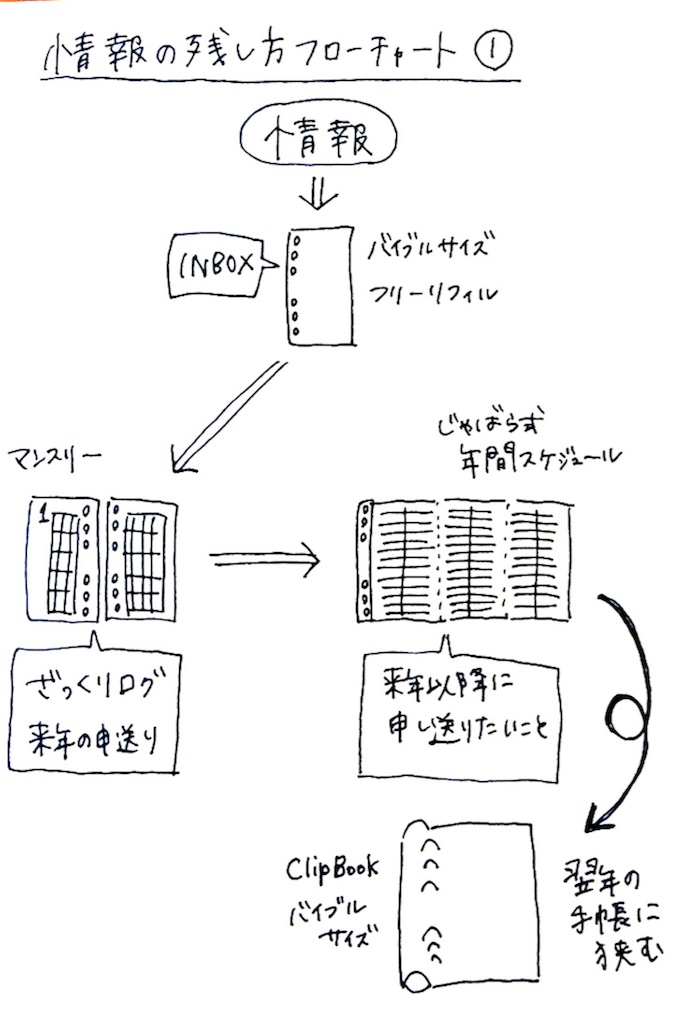 情報の残し方フローチャート①
情報
INBOX
バイブルサイズ
フリーリフィル
マンスリー
じゃばら式
年間スケジュール
1
ざっくりログ
来年の申送り
来年以降に
申し送りたいこと
ClipBook
バイブル
サイズ
翌年の
手帳に
挟む